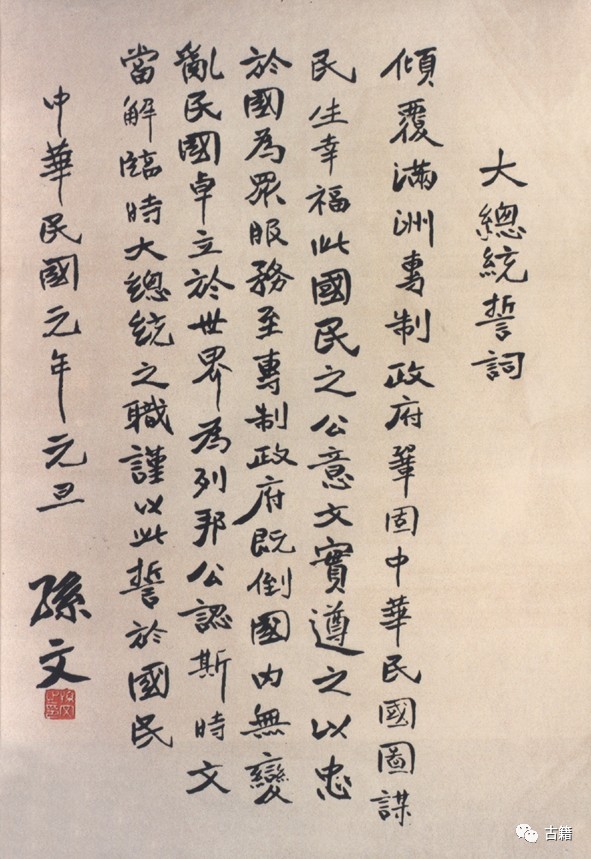 大總統誓詞
傾覆滿洲專制政府鞏固中華民國圖謀
民生幸福此國民之公意文實遵之以忠
於國為眾服務至專制政府既倒國內無變
亂民國卓立於世界為列邦公認斯時文
當解臨時大總統之職謹以此誓於國民
中華民國元年元旦
孫文
古籍